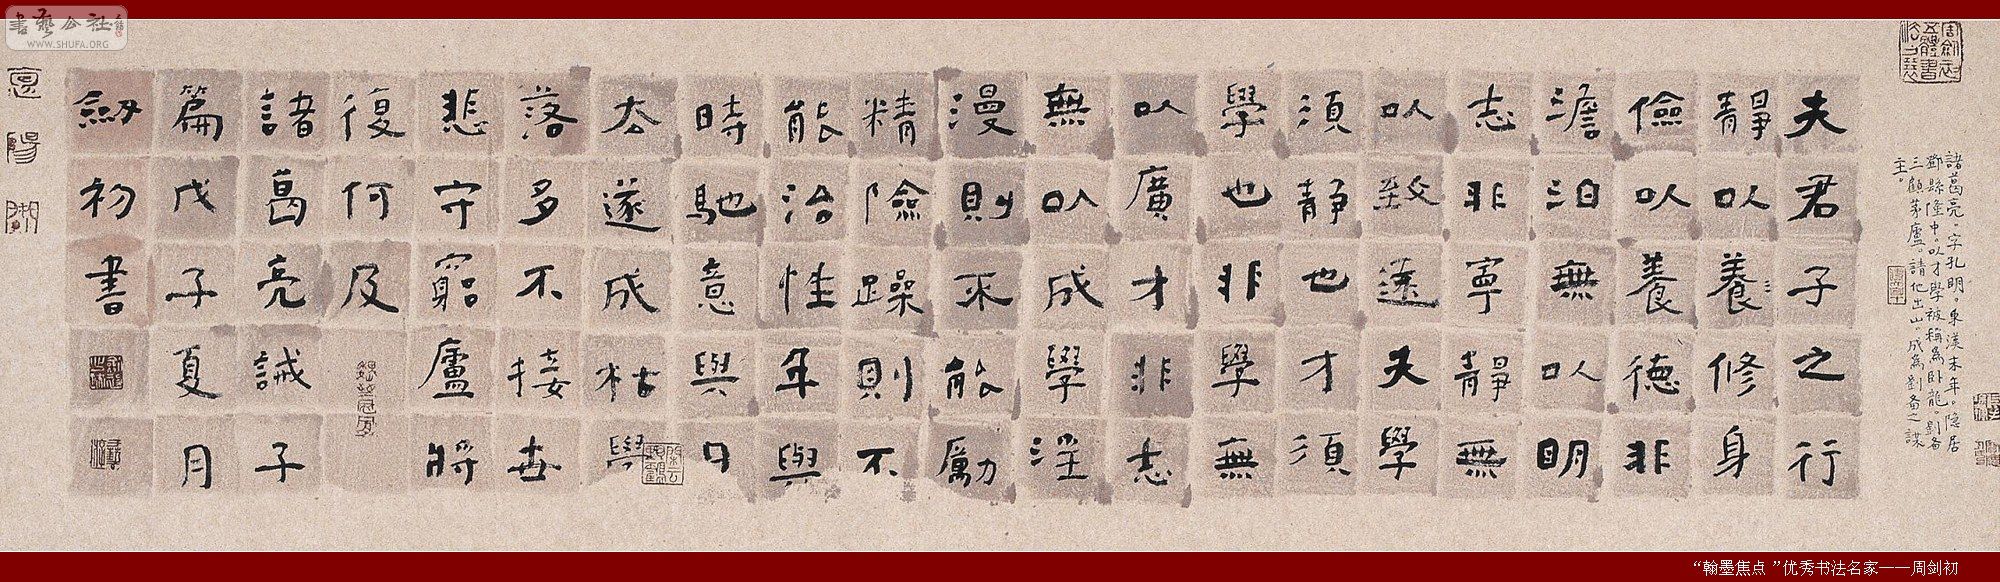 書藝公社
WWW.SHUFA.ORG
諸葛亮。字孔明。東漢末年。隱居
鄧縣隆中。以才學被稱為卧龍。劉备
三顧茅廬。請他出山。成為劉备之謀
主。
夫君子之行
靜以養修身
儉以養德非
澹泊無以明
志非寧靜無
以致遠夫學
須靜也才須
學也非學無
以廣才非志
無以成學淫
漫則来能勵
精險躁則不
能治性年與
時馳意與日
去遂成枯學
落多不接世
悲守窮廬將
復何及
諸葛亮誡子
篇戊子夏月
劒初書
“翰墨焦点 ”优秀书法名家——周剑初